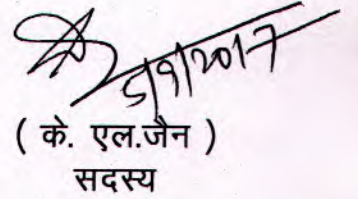 5/9/2017
( के. एल.जैन )
सदस्य